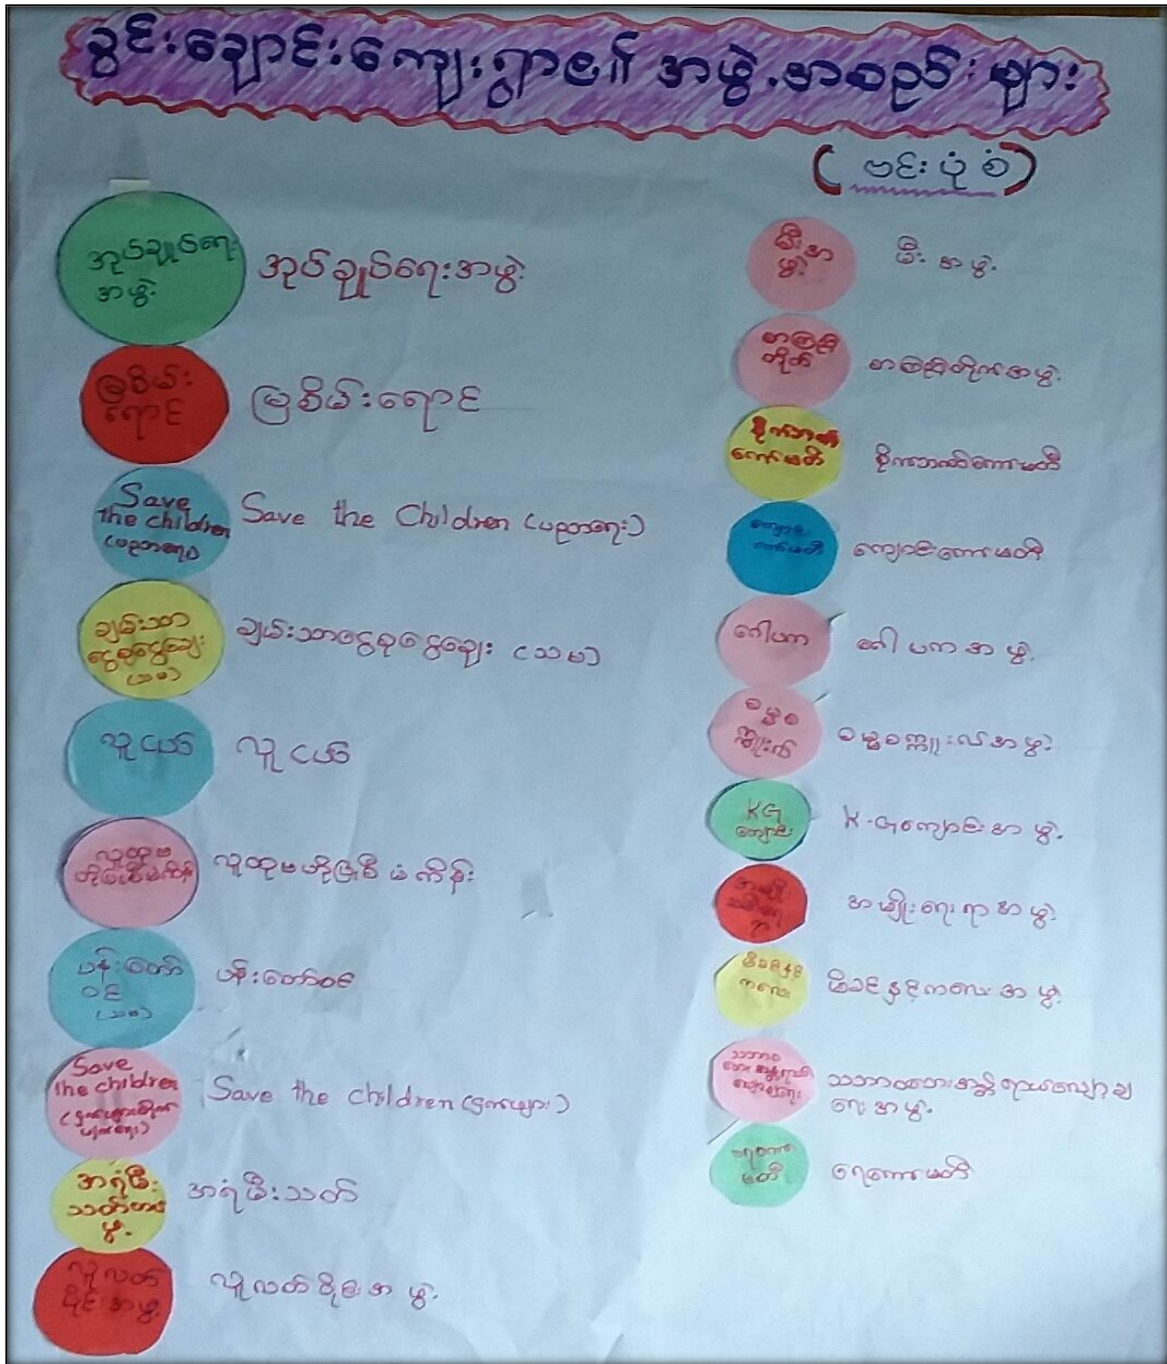 ခွင်းချောင်းကျေးရွာ၏ အဖွဲ့အစည်းများ
(ဗင်းပုံစံ)
အုပ်ချုပ်ရေး
အဖွဲ့
အုပ်ချုပ်ရေးအဖွဲ့
မြစိမ်း
ရောင်
မြစိမ်းရောင်
Save
the children
(ပညာရေး)
Save the Children (ပညာရေး)
ချမ်းသာ
ငွေစုငွေချေး
(သမ)
ချမ်းသာငွေစုငွေချေး (သမ)
လူငယ်
လူငယ်
လူထုဗဟိုပြုစီမံကိန်း
ပန်းတော်
ဝင်
(သမ)
ပန်းတော်ဝင်
Save
the children
Save the children
အရံမီး
သတ်
အဖွဲ့
အရံမီးသတ်
လူလတ်
ပိုင်းအဖွဲ့
လူလတ်ပိုင်းအဖွဲ့
မီးအ
ဖွဲ့
မီးအဖွဲ့
စာကြည့်
တိုက်
စာကြည့်တိုက်အဖွဲ့
ကော်မတီ
စိုက်ဘဏ်ကော်မတီ
ကျောင်း
ကော်မတီ
ကျောင်းကော်မတီ
ဂေါပက
ဂေါပကအဖွဲ့
ဓမ္မစ
ဓမ္မစကြာအဖွဲ့
KG
ကျောင်း
K.Gကျောင်းအဖွဲ့
အမျိုးရေးရာအဖွဲ့
မိခင်နှင့်
ကလေး
မိခင်နှင့်ကလေးအဖွဲ့
သဘာဝ
သဘာဝဘေးအန္တရာယ်လျော့ချ
ရေးအဖွဲ့
ရေကော်
မတီ
ရေကော်မတီ